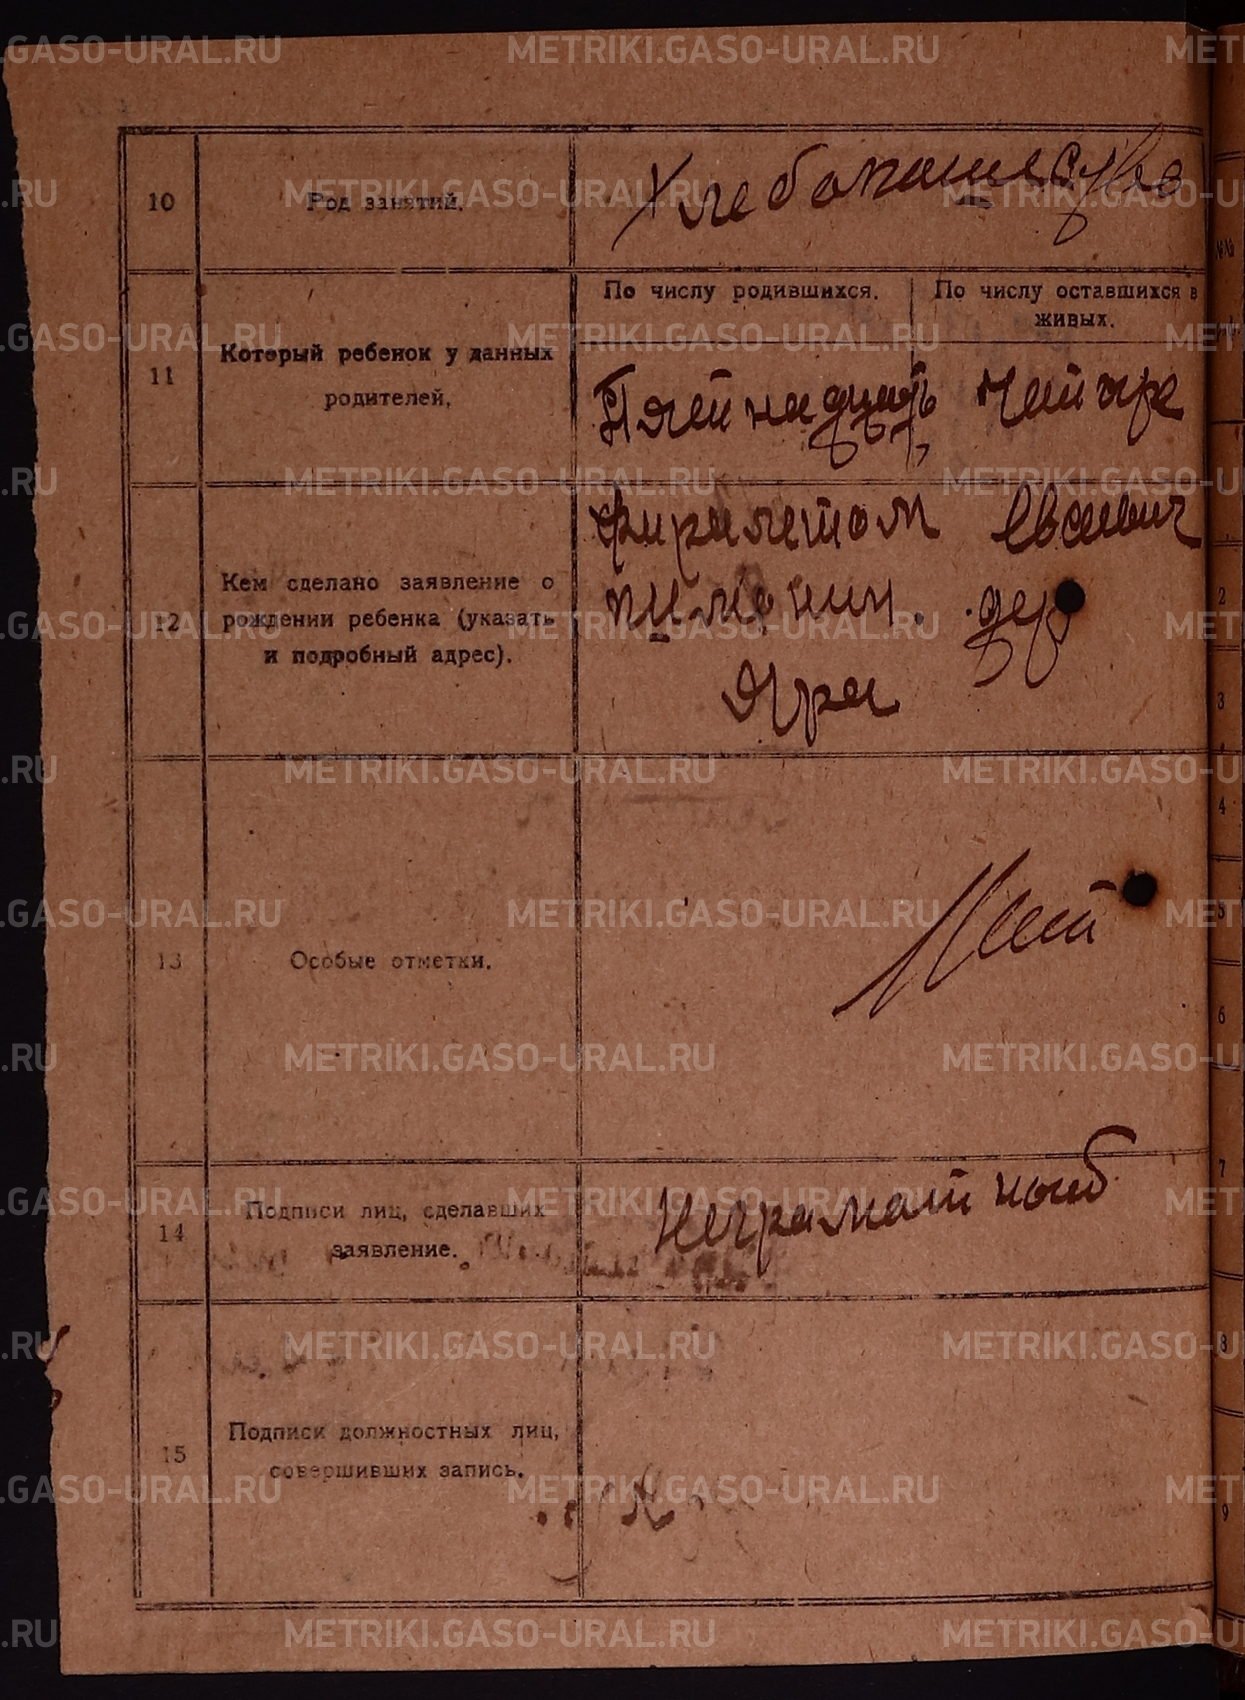 10
Род занятий.
Хлебопашество
11
Который ребенок у данных
родителей.
По числу родившихся.
По числу оставшихся в
живых.
Пятнадцать
четыре
12
Кем сделано заявление о
рождении ребенка (указать
и подробный адрес).
Евсеевич
дер
Яра
13
Особые отметки.
Нет
14
Подписи лиц, сделавших
заявление.
Неграматный
15
Подписи должностных лиц,
совершивших запись.
METRIKI.GASO-URAL.RU
2
3
4
5
6
7
8
9